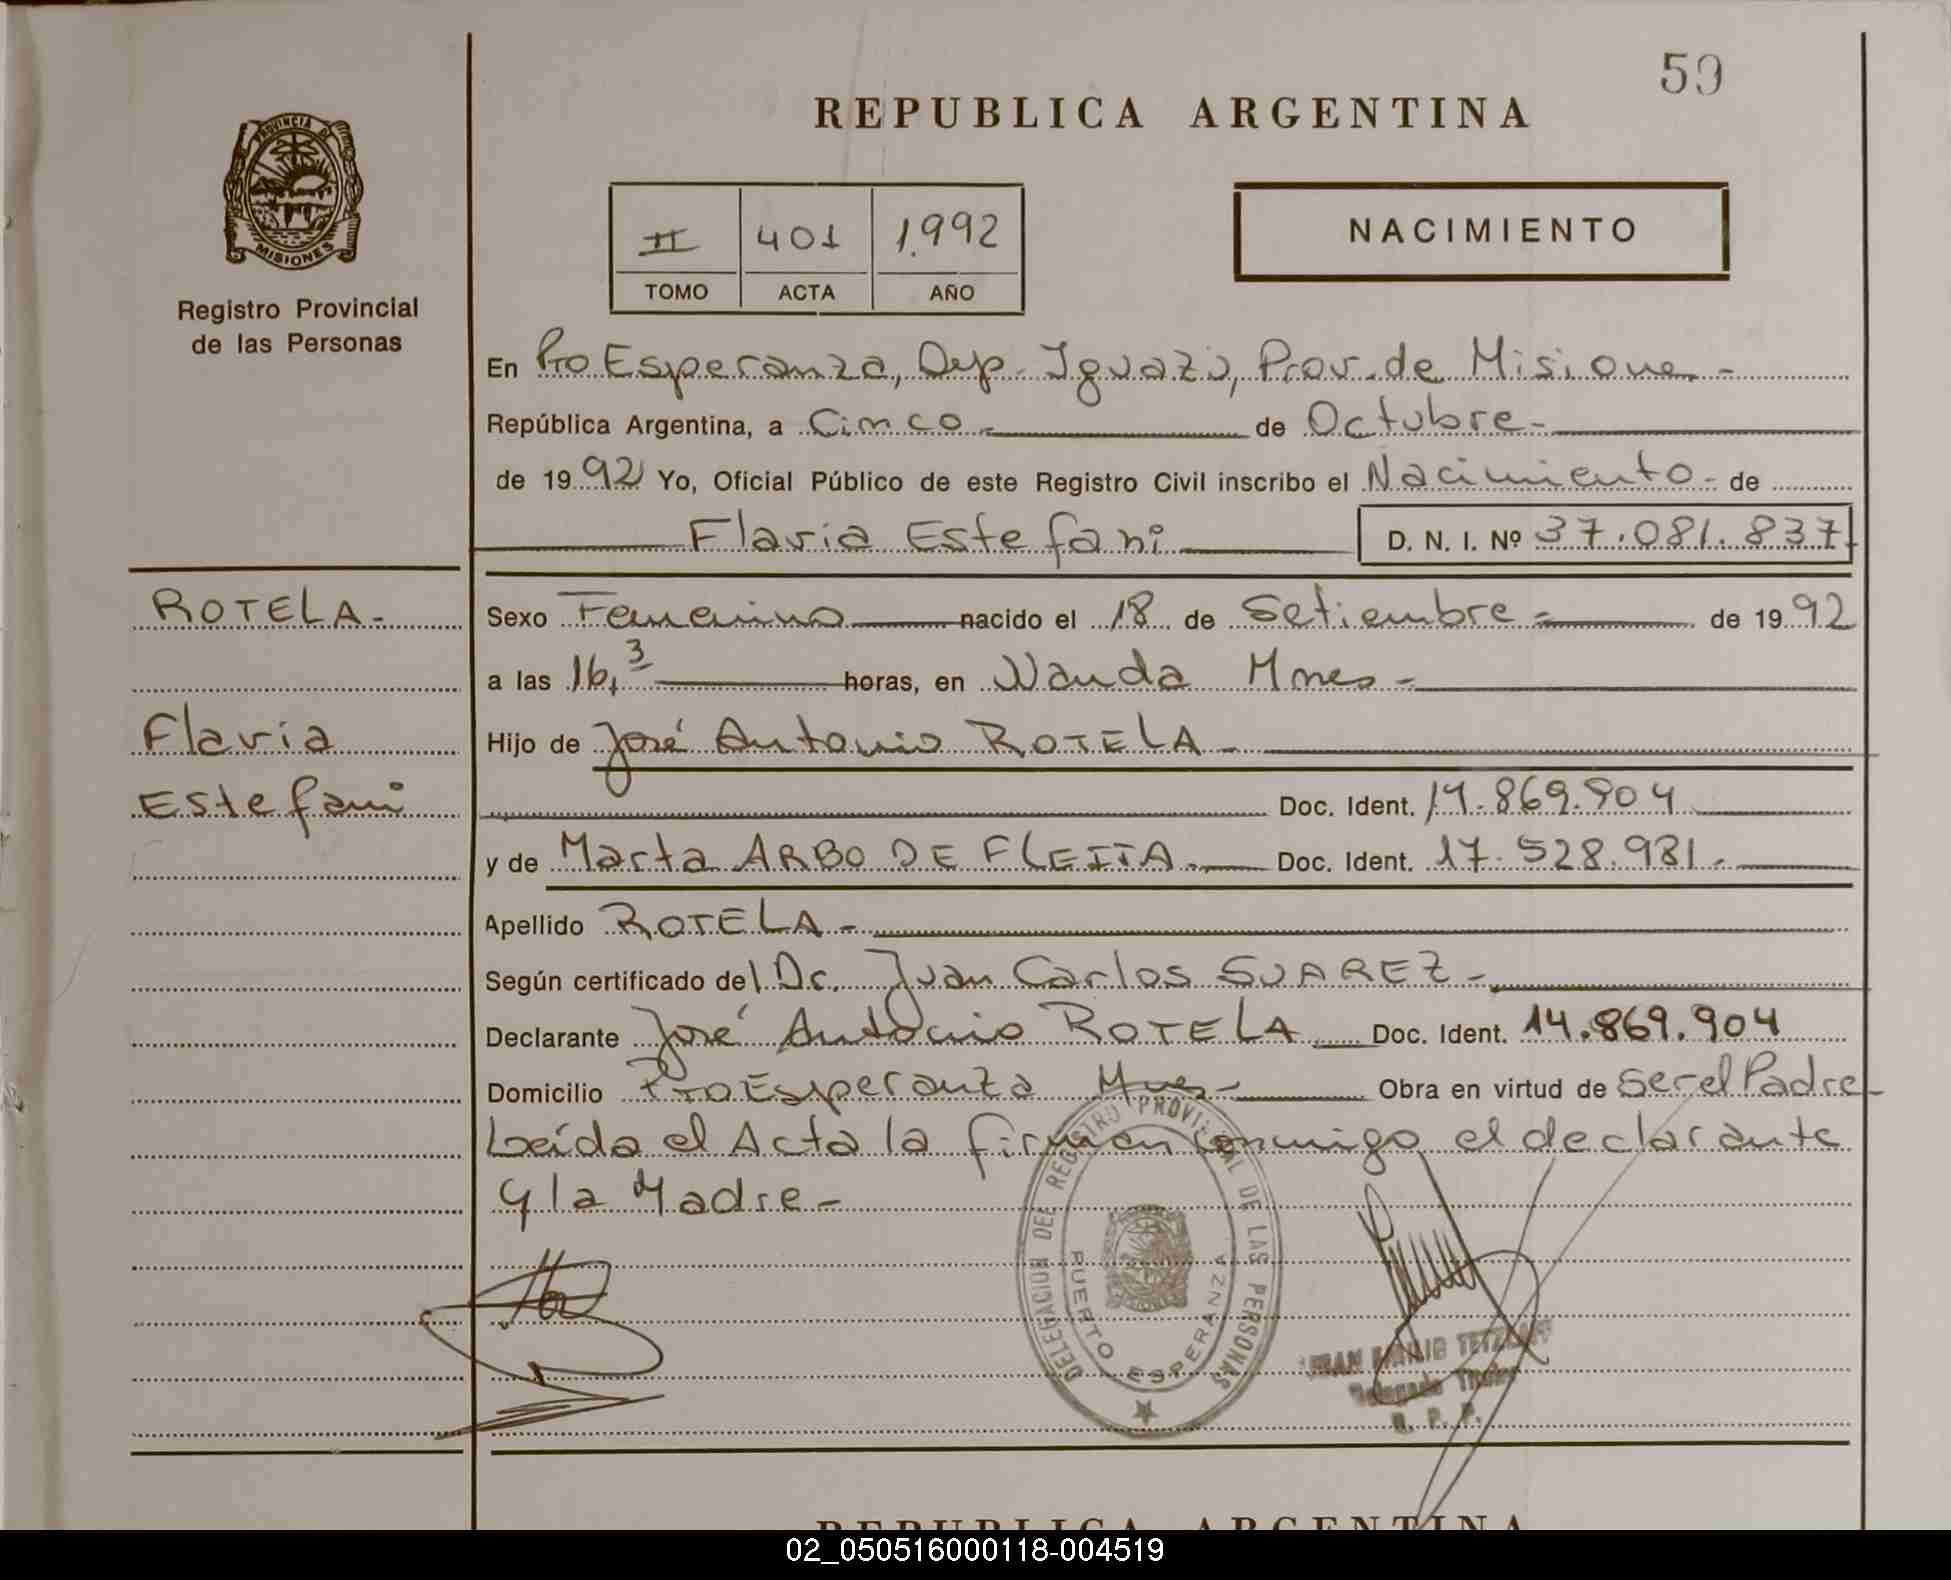 59
REPUBLICA ARGENTINA
PROVINCIA DE MISIONES
Registro Provincial
de las Personas
II 401 1.992
TOMO ACTA AÑO
NACIMIENTO
En Pto Esperanza, Dep. Iguazú, Prov. de Misiones -
República Argentina, a Cinco - de Octubre -
de 1992 Yo, Oficial Público de este Registro Civil inscribo el Nacimiento - de
Flavia Estefani D. N. I. Nº 37.081.837
ROTELA -
Flavia
Estefani
Sexo Femenino nacido el 18 de Setiembre = de 1992
a las 16,3 horas, en Wanda Mnes -
Hijo de José Antonio ROTELA -
Doc. Ident. 14.869.904
y de Marta ARBO DE FLEITA - Doc. Ident. 17.528.981 -
Apellido ROTELA -
Según certificado del Dr. Juan Carlos SUAREZ -
Declarante José Antonio ROTELA Doc. Ident. 14.869.904
Domicilio Pto Esperanza Mnes - Obra en virtud de ser el Padre -
Leída el Acta la firman conmigo el declarante
y la Madre -
DELEGACION DEL REGISTRO PROVINCIAL DE LAS PERSONAS
PUERTO ESPERANZA
Delegado Titular
R. P. P.
REPUBLICA ARGENTINA
02_050516000118-004519